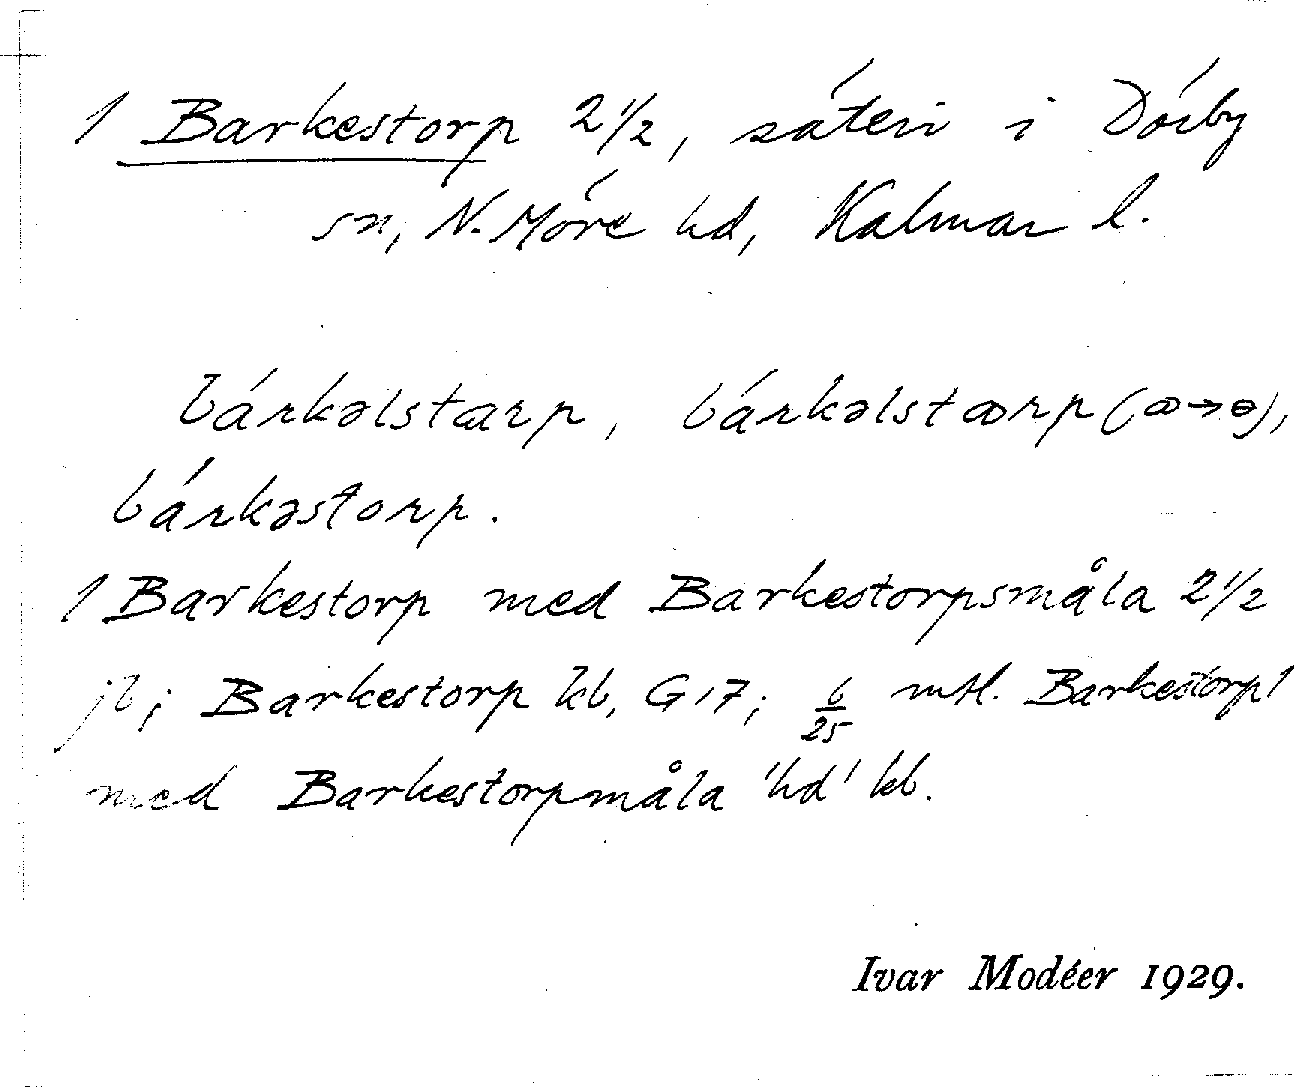 1 Barkestorp 2 1/2, säteri i Dörby
sn, N. Möre hd, Kalmar l.
bárkəlstarp, bárkəlstꝏrp (ꝏ→ɵ),
bárkəstorp.
1 Barkestorp med Barkestorpsmåla 2 1/2
jb; Barkestorp kb, G17; 6/25 mtl. Barkestorp 1
med Barkestorpmåla 'hd' kb.
Ivar Modéer 1929.